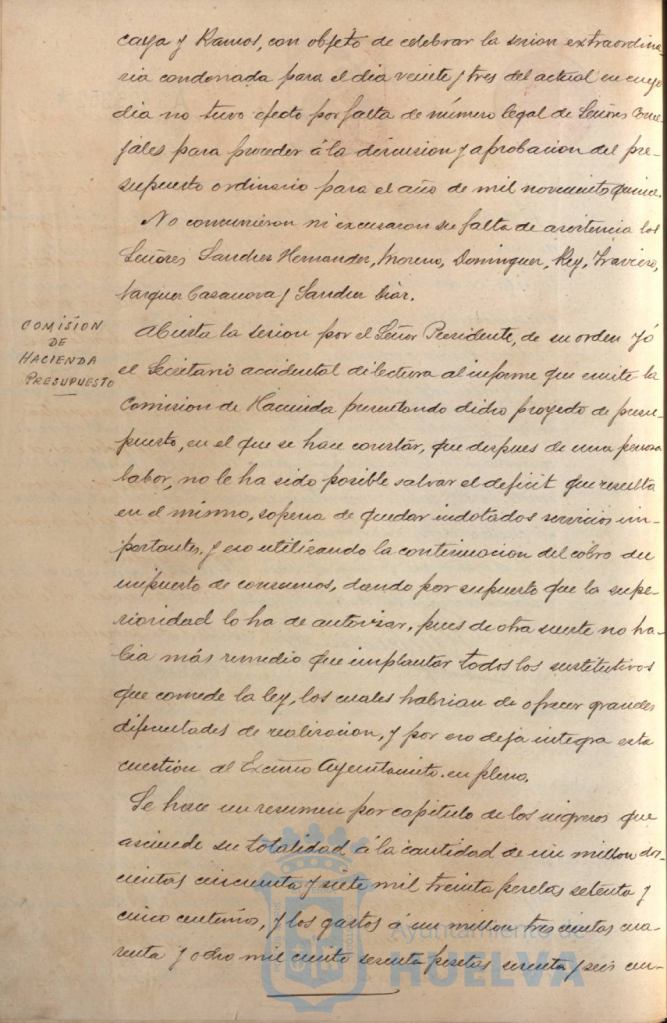 caya y Ramos, con objeto de celebrar la sesion extraordina-
ria condenada para el dia veinte y tres del actual en cuyo
dia no tuvo efecto por falta de número legal de Señores Conce-
jales para proceder á la discusion y aprobacion del pre-
supuesto ordinario para el año de mil novecientos quince.
No concurrieron ni excusaron su falta de asistencia los
Señores Sanchez Hernandez, Moreno, Dominguez, Rey, Traviero,
Vazquez Casanova y Sanchez Diaz.
COMISION
DE
HACIENDA
PRESUPUESTO
Abierta la sesion por el Señor Presidente, de su orden yó
el Secretario accidental di lectura al informe que emite la
Comision de Hacienda presentando dicho proyecto de presu-
puesto, en el que se hace constar, que despues de una penosa
labor, no le ha sido posible salvar el deficit que resulta
en el mismo, sopena de quedar indotados servicios im-
portantes, y eso utilizando la continuacion del cobro del
impuesto de consumos, dando por supuesto que la supe-
rioridad lo ha de autorizar, pues de otra suerte no ha-
bia más remedio que implantar todos los sustitutivos
que concede la ley, los cuales habrian de ofrecer grandes
dificultades de realizacion, y por eso deja integra esta
cuestión al Excmo Ayuntamiento en pleno.
Se hace un resumen por capitulo de los ingresos que
asciende su totalidad á la cantidad de un millon dos-
cientas cincuenta y siete mil treinta pesetas setenta y
cinco centimos, y los gastos á un millon trescientas cua-
renta y ocho mil ciento sesenta pesetas sesenta y seis cen-
Ayuntamiento de
HUELVA